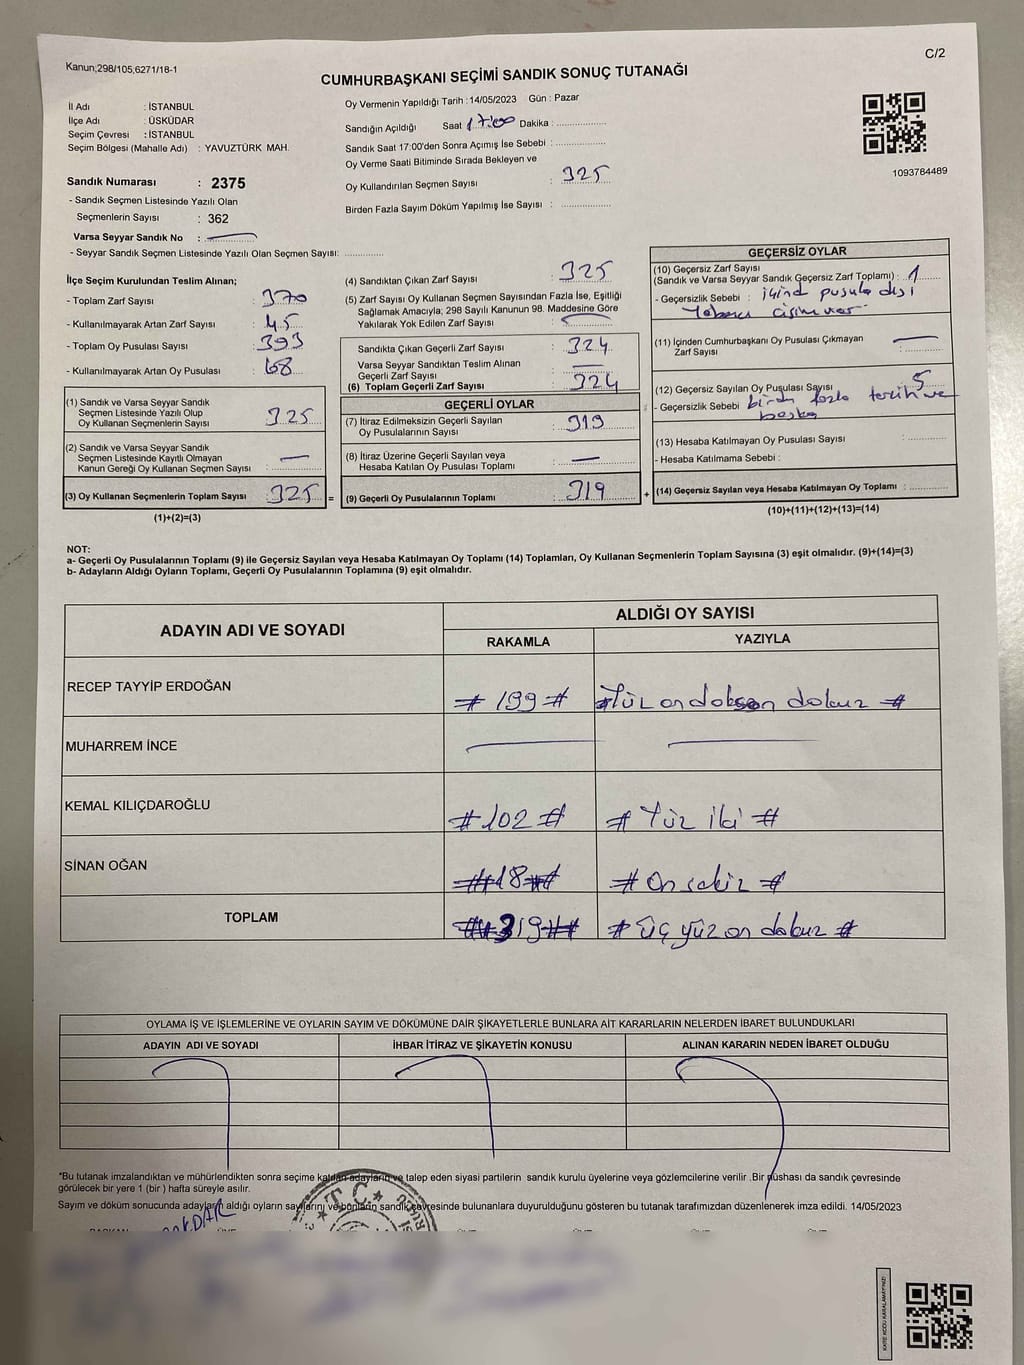 Kanun;298/105,6271/18-1
C/2
CUMHURBAŞKANI SEÇİMİ SANDIK SONUÇ TUTANAĞI
İl Adı : İSTANBUL
İlçe Adı : ÜSKÜDAR
Seçim Çevresi : İSTANBUL
Seçim Bölgesi (Mahalle Adı) : YAVUZTÜRK MAH.
Sandık Numarası : 2375
- Sandık Seçmen Listesinde Yazılı Olan
Seçmenlerin Sayısı : 362
Varsa Seyyar Sandık No :
- Seyyar Sandık Seçmen Listesinde Yazılı Olan Seçmen Sayısı:
Oy Vermenin Yapıldığı Tarih :14/05/2023 Gün : Pazar
Sandığın Açıldığı Saat 17:00 Dakika :
Sandık Saat 17:00'den Sonra Açımış İse Sebebi :
Oy Verme Saati Bitiminde Sırada Bekleyen ve
Oy Kullandırılan Seçmen Sayısı : 325
Birden Fazla Sayım Döküm Yapılmış İse Sayısı :
1093764489
İlçe Seçim Kurulundan Teslim Alınan;
- Toplam Zarf Sayısı : 370
- Kullanılmayarak Artan Zarf Sayısı : 45
- Toplam Oy Pusulası Sayısı : 393
- Kullanılmayarak Artan Oy Pusulası : 68
(1) Sandık ve Varsa Seyyar Sandık
Seçmen Listesinde Yazılı Olup
Oy Kullanan Seçmenlerin Sayısı : 325
(2) Sandık ve Varsa Seyyar Sandık
Seçmen Listesinde Kayıtlı Olmayan
Kanun Gereği Oy Kullanan Seçmen Sayısı : —
(3) Oy Kullanan Seçmenlerin Toplam Sayısı : 325 =
(1)+(2)=(3)
(4) Sandıktan Çıkan Zarf Sayısı : 325
(5) Zarf Sayısı Oy Kullanan Seçmen Sayısından Fazla İse, Eşitliği
Sağlamak Amacıyla; 298 Sayılı Kanunun 98. Maddesine Göre
Yakılarak Yok Edilen Zarf Sayısı : —
Sandıkta Çıkan Geçerli Zarf Sayısı : 324
Varsa Seyyar Sandıktan Teslim Alınan
Geçerli Zarf Sayısı : —
(6) Toplam Geçerli Zarf Sayısı : 324
GEÇERLİ OYLAR
(7) İtiraz Edilmeksizin Geçerli Sayılan
Oy Pusulalarının Sayısı : 319
(8) İtiraz Üzerine Geçerli Sayılan veya
Hesaba Katılan Oy Pusulası Toplamı : —
(9) Geçerli Oy Pusulalarının Toplamı : 319 +
GEÇERSİZ OYLAR
(10) Geçersiz Zarf Sayısı
(Sandık ve Varsa Seyyar Sandık Geçersiz Zarf Toplamı) : 1
- Geçersizlik Sebebi : içind pusula dışı
Yabancı cisim var
(11) İçinden Cumhurbaşkanı Oy Pusulası Çıkmayan
Zarf Sayısı —
(12) Geçersiz Sayılan Oy Pusulası Sayısı 5
- Geçersizlik Sebebi birden fazla tercih ve
başka
(13) Hesaba Katılmayan Oy Pusulası Sayısı :
- Hesaba Katılmama Sebebi :
(14) Geçersiz Sayılan veya Hesaba Katılmayan Oy Toplamı :
(10)+(11)+(12)+(13)=(14)
NOT:
a- Geçerli Oy Pusulalarının Toplamı (9) ile Geçersiz Sayılan veya Hesaba Katılmayan Oy Toplamı (14) Toplamları, Oy Kullanan Seçmenlerin Toplam Sayısına (3) eşit olmalıdır. (9)+(14)=(3)
b- Adayların Aldığı Oyların Toplamı, Geçerli Oy Pusulalarının Toplamına (9) eşit olmalıdır.
ADAYIN ADI VE SOYADI
ALDIĞI OY SAYISI
RAKAMLA YAZIYLA
RECEP TAYYİP ERDOĞAN # 199 # # Yüz on doksan dokuz #
MUHARREM İNCE — —
KEMAL KILIÇDAROĞLU # 102 # # Yüz iki #
SİNAN OĞAN # 18 # # On sekiz #
TOPLAM # 319 # # üç yüz on dokuz #
OYLAMA İŞ VE İŞLEMLERİNE VE OYLARIN SAYIM VE DÖKÜMÜNE DAİR ŞİKAYETLERLE BUNLARA AİT KARARLARIN NELERDEN İBARET BULUNDUKLARI
ADAYIN ADI VE SOYADI İHBAR İTİRAZ VE ŞİKAYETİN KONUSU ALINAN KARARIN NEDEN İBARET OLDUĞU
*Bu tutanak imzalandıktan ve mühürlendikten sonra seçime katılan adayların ve talep eden siyasi partilerin sandık kurulu üyelerine veya gözlemcilerine verilir .Bir nüshası da sandık çevresinde
görülecek bir yere 1 (bir ) hafta süreyle asılır.
Sayım ve döküm sonucunda adayların aldığı oyların sayılarını ve bunların sandık çevresinde bulunanlara duyurulduğunu gösteren bu tutanak tarafımızdan düzenlenerek imza edildi. 14/05/2023
T.C.